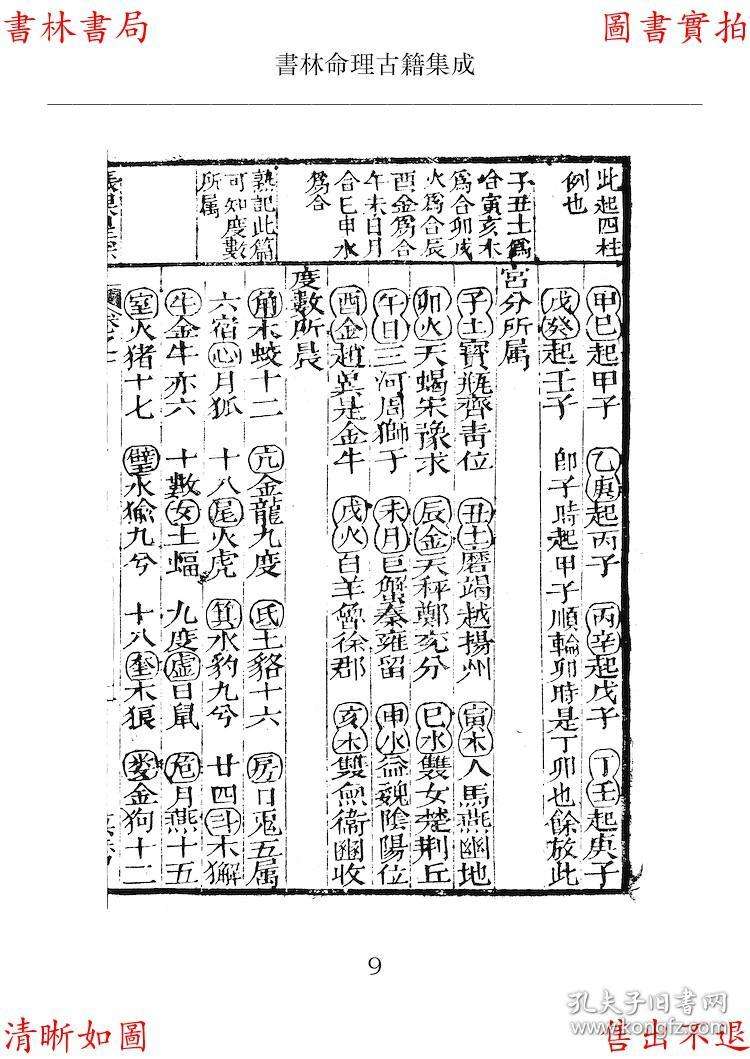 書林書局
圖書實拍
書林命理古籍集成
此起四柱
例也
子丑土爲
合寅亥木
爲合卯戌
火爲合辰
酉金爲合
午未日月
合巳申水
爲合
熟記此篇
可知度數
所属
甲巳起甲子 乙庚起丙子 丙辛起戊子 丁壬起庚子
戊癸起壬子 卽子時起甲子順輪卯時是丁卯也餘放此
宮分所属
子土寶瓶齊青位 丑土磨竭越揚州 寅木人馬燕幽地
卯火天蝎宋豫求 辰金天秤鄭兗分 巳水雙女楚荆丘
午日三河周獅子 未月巨蟹秦雍留 申水益魏陰陽位
酉金趙冀是金牛 戌火白羊魯徐郡 亥木雙魚衛幽收
度數所晨
角木蛟十二 亢金龍九度 氐土貉十六 房日兎五属
六宿心月狐 十八尾火虎 箕水豹九兮 廿四斗木獬
牛金牛亦六 十數女土蝠 九度虚日鼠 危月燕十五
室火猪十七 璧水㺄九兮 十八奎木狼 婁金狗十二
9
孔夫子旧书网
www.kongfz.com
清晰如圖
售出不退